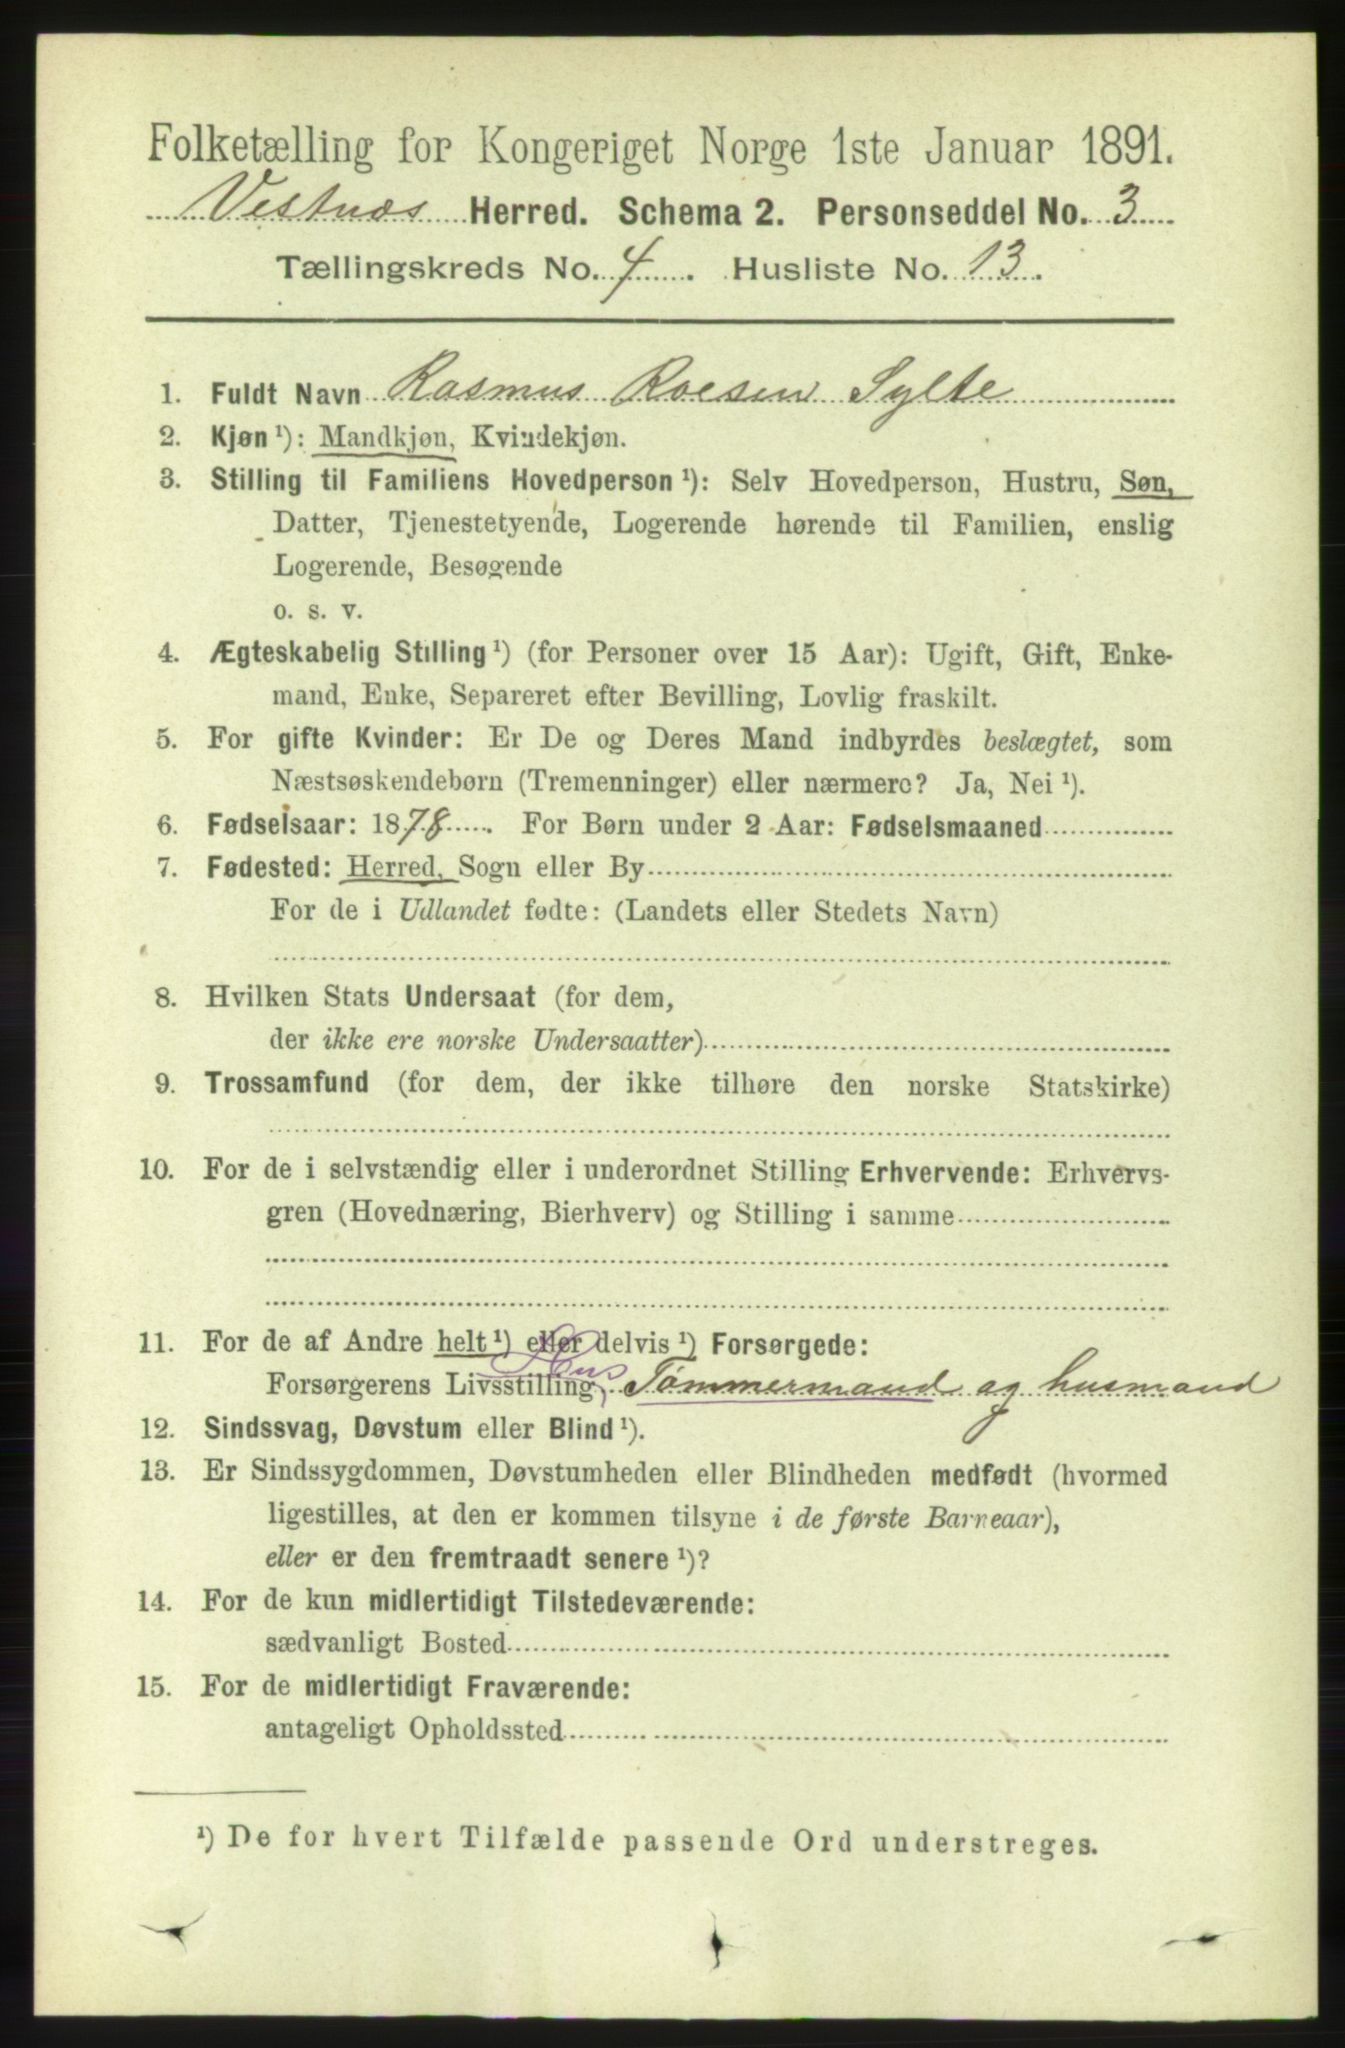 Folketælling for Kongeriget Norge 1ste Januar 1891.
Vestnæs Herred. Schema 2. Personseddel No. 3
Tællingskreds No. 4. Husliste No. 13.
1. Fuldt Navn Rasmus Roesen Sylte
2. Kjøn ¹): Mandkjøn, Kvindekjøn.
3. Stilling til Familiens Hovedperson ¹): Selv Hovedperson, Hustru, Søn,
Datter, Tjenestetyende, Logerende hørende til Familien, enslig
Logerende, Besøgende
o. s. v.
4. Ægteskabelig Stilling ¹) (for Personer over 15 Aar): Ugift, Gift, Enke-
mand, Enke, Separeret efter Bevilling, Lovlig fraskilt.
5. For gifte Kvinder: Er De og Deres Mand indbyrdes beslægtet, som
Næstsøskendebørn (Tremenninger) eller nærmere? Ja, Nei ¹).
6. Fødselsaar: 1878. For Børn under 2 Aar: Fødselsmaaned
7. Fødested: Herred, Sogn eller By
For de i Udlandet fødte: (Landets eller Stedets Navn)
8. Hvilken Stats Undersaat (for dem,
der ikke ere norske Undersaatter)
9. Trossamfund (for dem, der ikke tilhøre den norske Statskirke)
10. For de i selvstændig eller i underordnet Stilling Erhvervende: Erhvervs-
gren (Hovednæring, Bierhverv) og Stilling i samme
11. For de af Andre helt ¹) eller delvis ¹) Forsørgede:
Hus
Forsørgerens Livsstilling, Tømmermand og husmand
12. Sindssvag, Døvstum eller Blind ¹).
13. Er Sindssygdommen, Døvstumheden eller Blindheden medfødt (hvormed
ligestilles, at den er kommen tilsyne i de første Barneaar),
eller er den fremtraadt senere ¹)?
14. For de kun midlertidigt Tilstedeværende:
sædvanligt Bosted
15. For de midlertidigt Fraværende:
antageligt Opholdssted
¹) De for hvert Tilfælde passende Ord understreges.